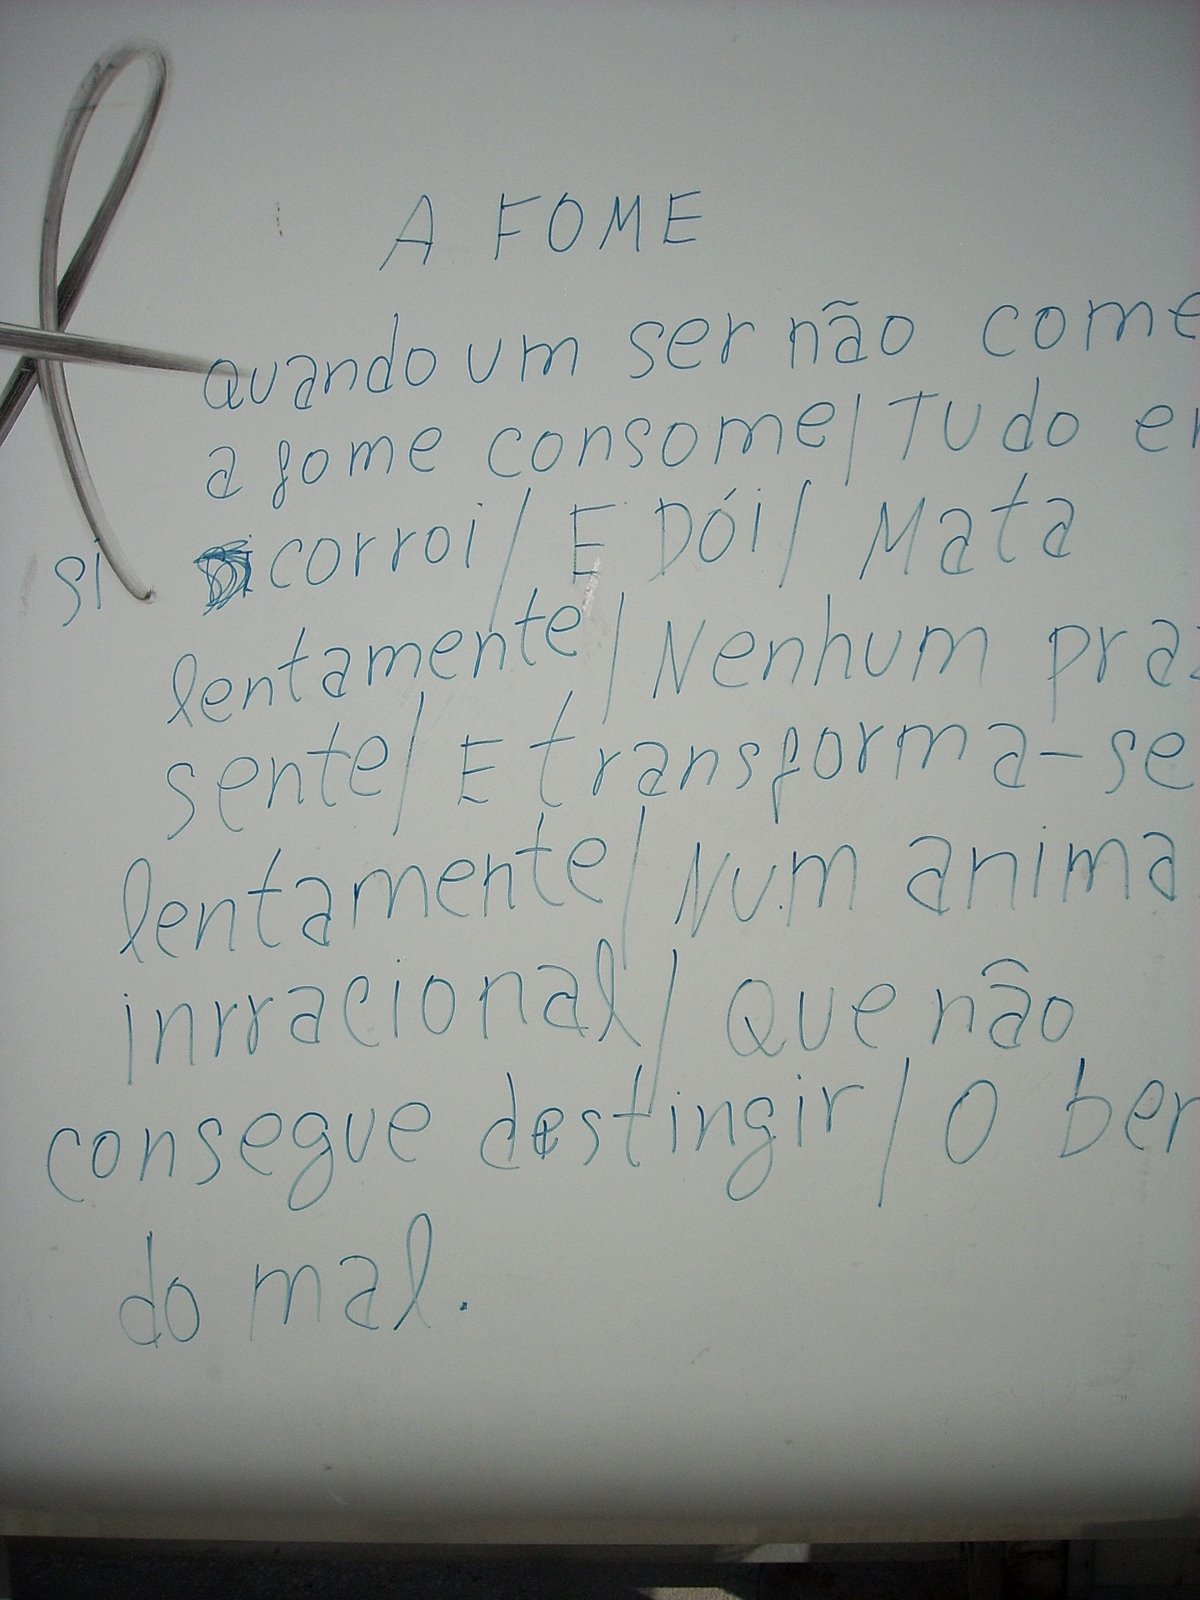 A FOME
quando um ser não come
a fome consome/ Tudo e
si corroi/ E Dói/ Mata
lentamente/ Nenhum pra
sente/ E transforma-se
lentamente/ Num anima
inrracional/ Que não
consegue destingir/ O be
do mal.